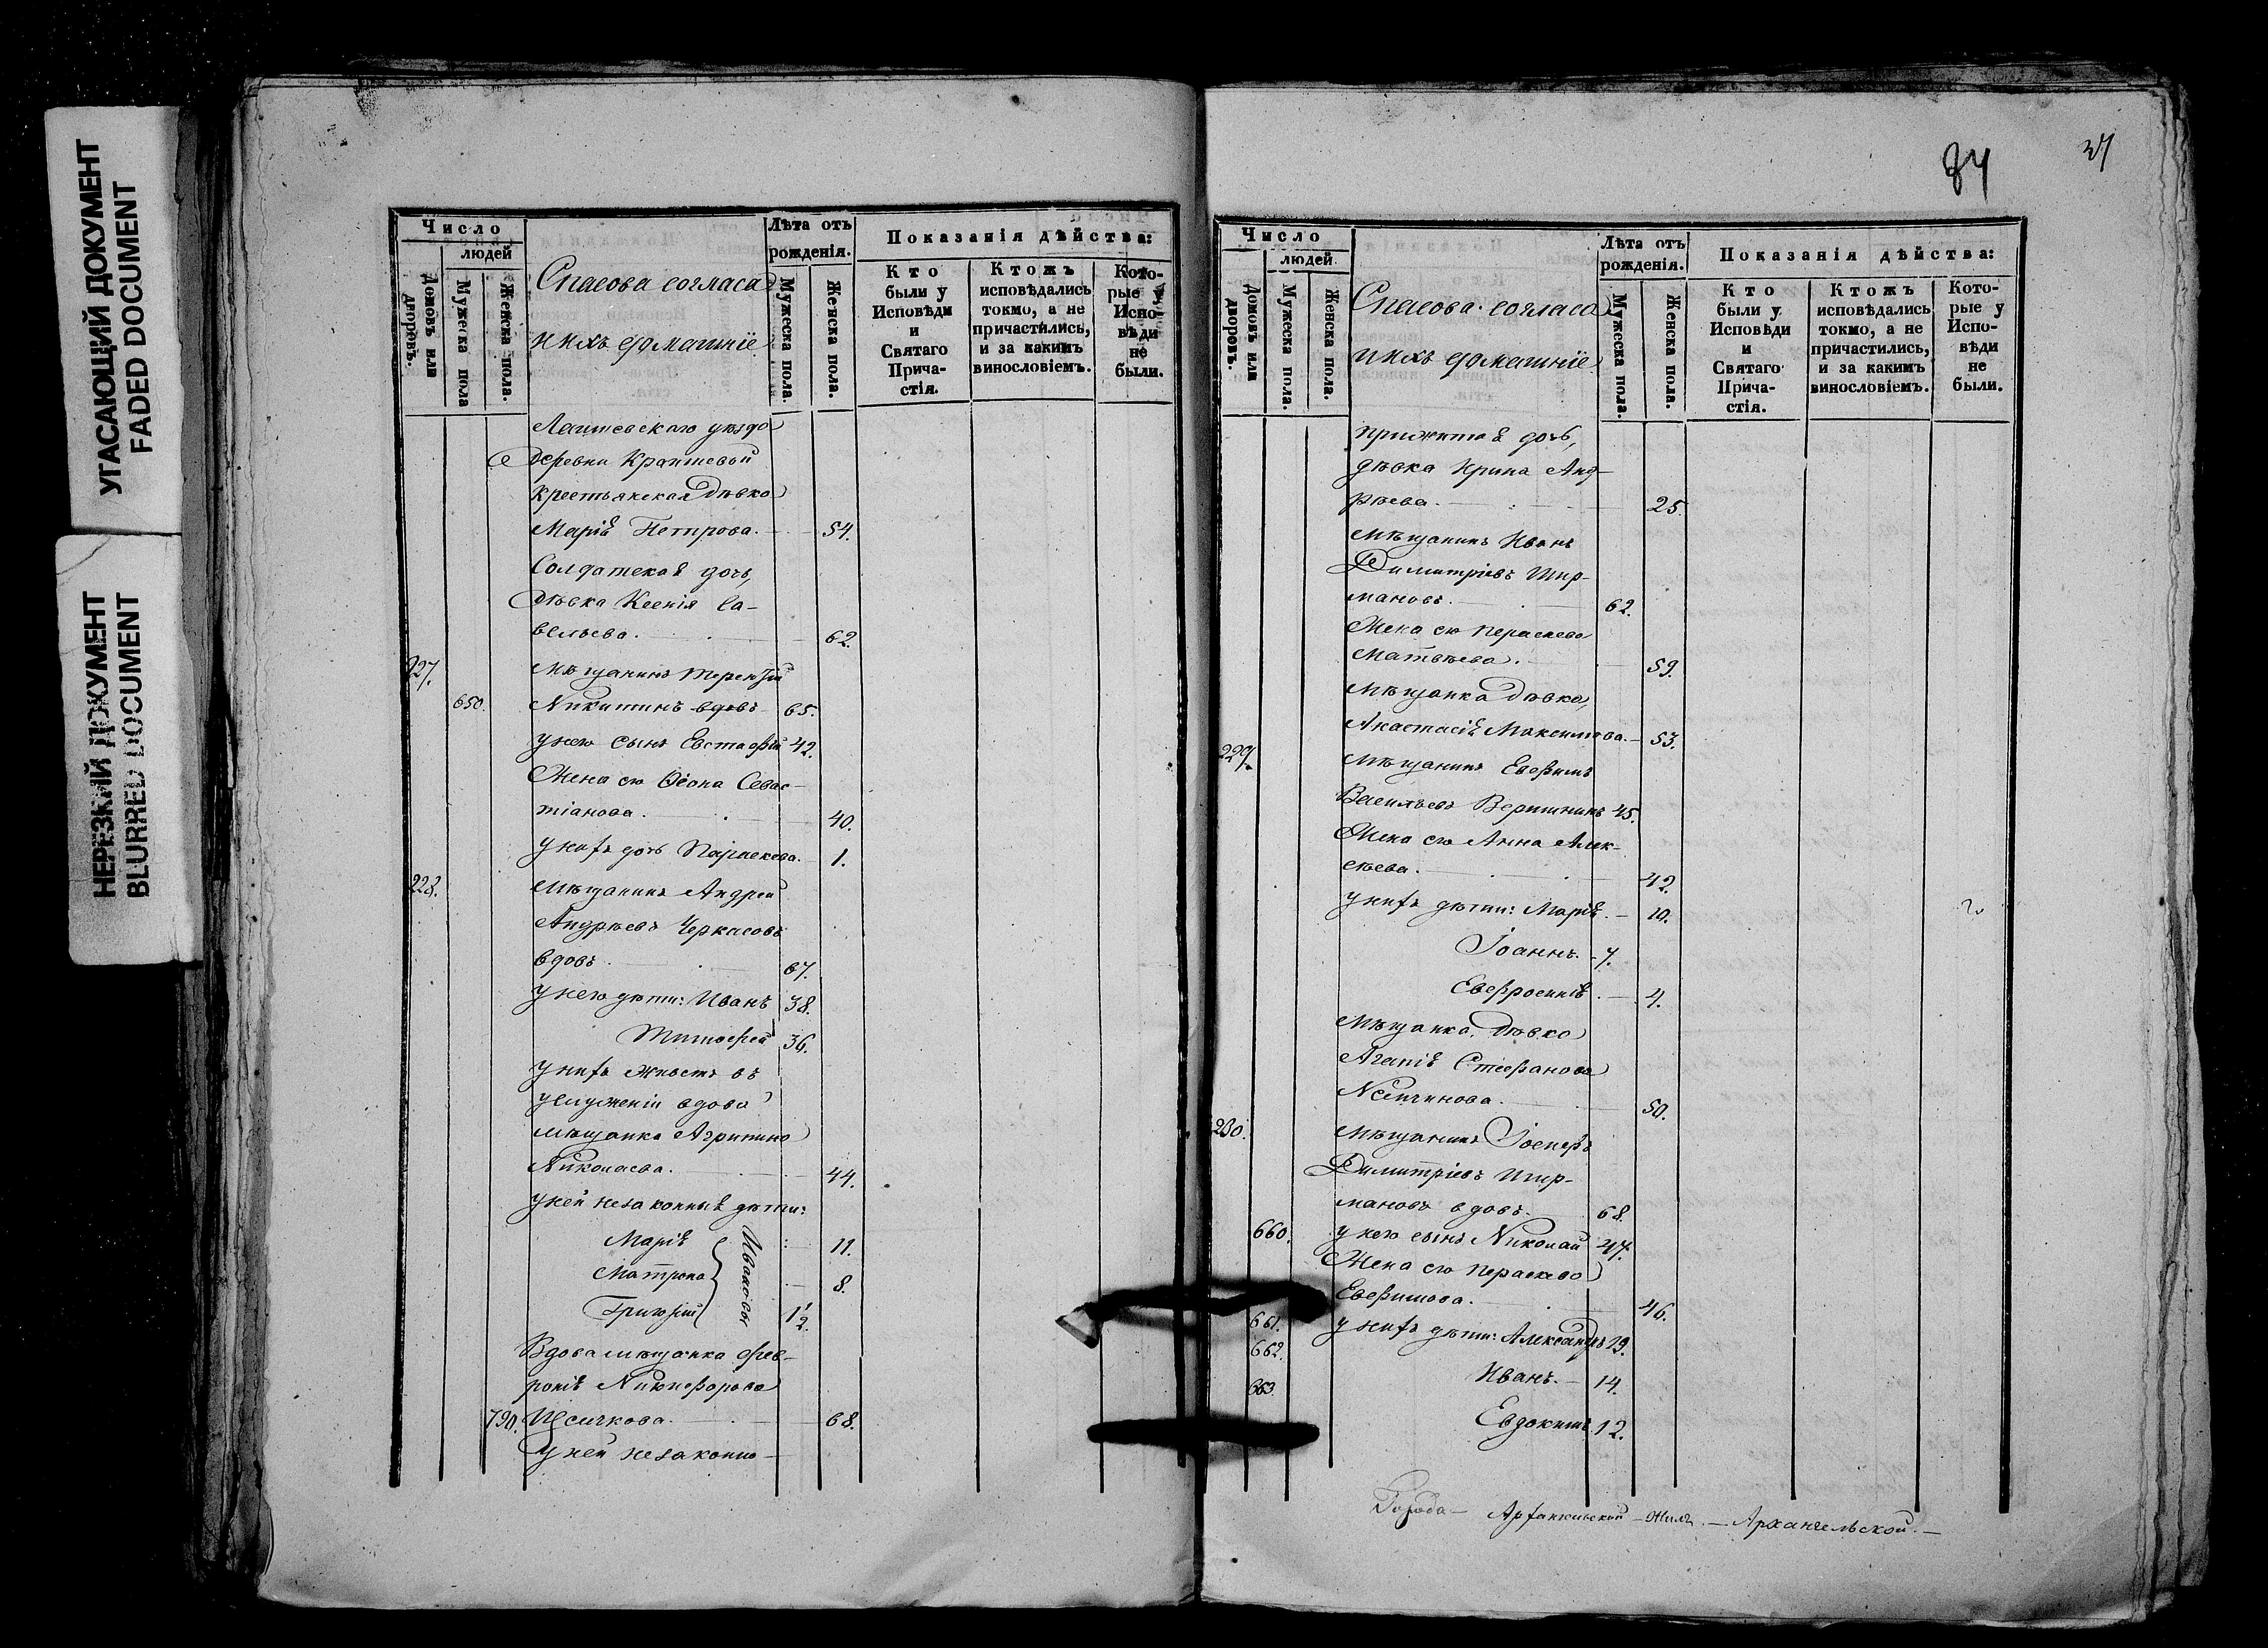 УГАСАЮЩИЙ ДОКУМЕНТ
FADED DOCUMENT
НЕРЕЗКИЙ ДОКУМЕНТ
BLURRED DOCUMENT
Число
людей
Домовъ или дворовъ.
Мужеска пола
Женска пола.
Спасова согласа
и ихъ домашніе
Лѣта отъ рожденія.
Мужеска пола.
Женска пола.
Показанія дѣйства:
Кто были у Исповѣди и Святаго Прича-стія.
Ктожъ исповѣдались токмо, а не причастились, и за какимъ винословіемъ.
Кото-рые у Испо-вѣди не были.
Лаишевскаго уѣзда
деревни
крестьянская дѣвка
Марія Петрова. 54.
Солдатская дочь,
дѣвка Ксенія Са-
вельева. 62.
227. Мѣщанинъ Терентій
650. Никитинъ вдовъ 65.
у него сынъ Евстафій 42.
Жена его Ѳеона Севас-
тіанова. 40.
у нихъ дочь Параскева. 1.
228. Мѣщанинъ Андрей
Андреевъ Черкасовъ
вдовъ 67.
у него дѣти: Иванъ 38.
Тимофей 36.
у нихъ живетъ въ
услуженіи вдова
мѣщанка Агрипина
Николаева. 44.
у ней незаконныя дѣти:
Марія 11.
Матрона 8.
Григорій 1½.
Ивановы
Вдова мѣщанка Фев-
ронія Никифорова
790. 68.
у ней незаконно-
84
Число
людей.
Домовъ или дворовъ.
Мужеска пола.
Женска пола.
Спасова согласа
и ихъ домашніе
Лѣта отъ рожденія.
Мужеска пола.
Женска пола.
Показанія дѣйства:
Кто были у Исповѣди и Святаго Прича-стія.
Ктожъ исповѣдались токмо, а не причастились, и за какимъ винословіемъ.
Кото-рые у Испо-вѣди не были.
прижитая дочь,
дѣвка Ирина Анд-
рѣева. 25.
Мѣщанинъ Иванъ
Димитріевъ Шир-
мановъ. 62.
Жена его Параскева
Матвѣева. 59.
Мѣщанка дѣвка,
Анастасія Максимова. 53.
229. Мѣщанинъ Евфимъ
Васильевъ Вершининъ 45.
Жена его Анна Алек-
сѣева. 42.
у нихъ дѣти: Марія. 10.
Іоаннъ. 7.
Евфросинія. 4.
Мѣщанка дѣвка
Агапія Стефанова
50.
230. Мѣщанинъ Іосифъ
Димитріевъ Шир-
мановъ вдовъ. 68.
660. у него сынъ Николай 47.
Жена его Параскева
Евфимова. 46.
661. у нихъ дѣти: Александръ 19.
662. Иванъ. 14.
663. Евдокимъ 12.
Города — Архангельской.—